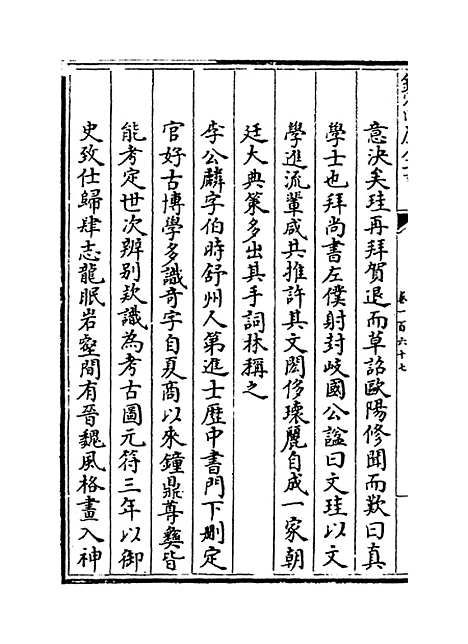 欽定四庫全書
卷一百六十七
意決矣珪再拜賀退而草詔歐陽修聞而歎曰真
學士也拜尚書左僕射封岐國公諡曰文珪以文
學進流輩咸共推許其文閎侈瓌麗自成一家朝
廷大典策多出其手詞林稱之
李公麟字伯時舒州人第進士歷中書門下刪定
官好古博學多識奇字自夏商以來鐘鼎尊彝皆
能考定世次辨别欵識為考古圖元符三年以御
史致仕歸肆志龍眠岩壑間有晉魏風格畫入神